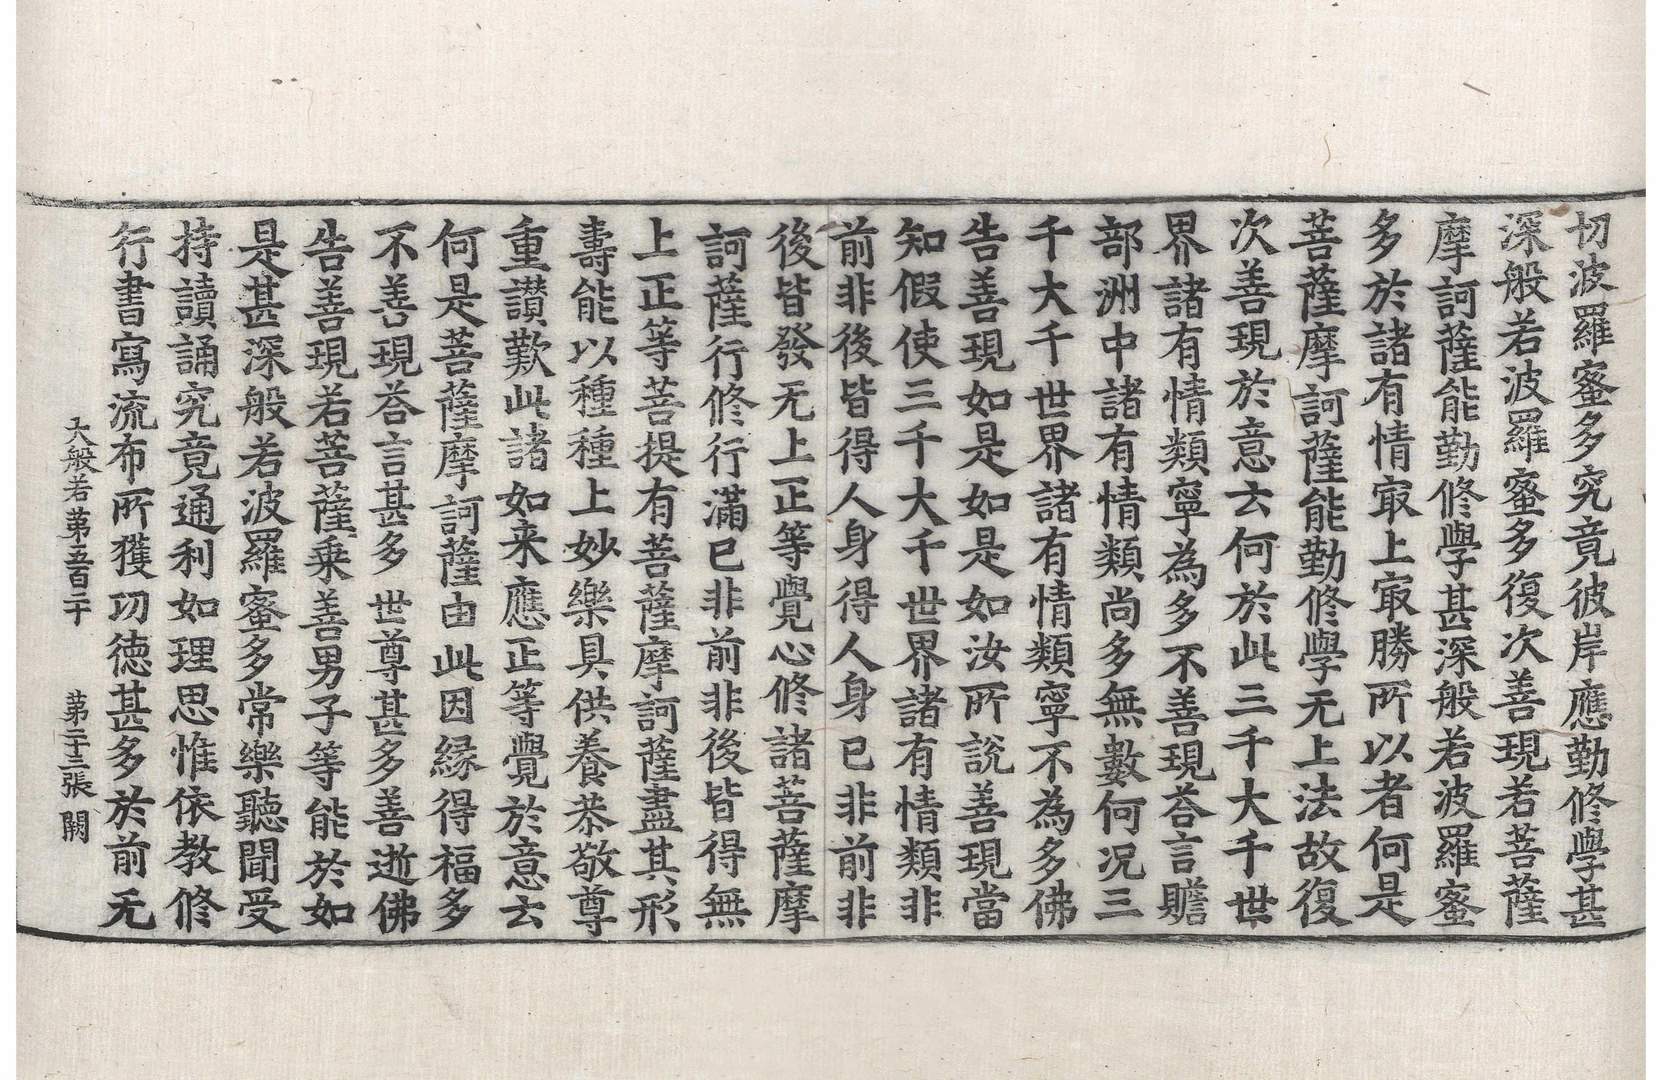 切波羅蜜多究竟彼岸應勤修學甚
深般若波羅蜜多復次善現若菩薩
摩訶薩能勤修學甚深般若波羅蜜
多於諸有情㝡上㝡勝所以者何是
菩薩摩訶薩能勤修學无上法故復
次善現於意云何於此三千大千世
界諸有情類寧為多不善現荅言贍
部洲中諸有情類尚多無數何況三
千大千世界諸有情類寧不為多佛
告善現如是如是如汝所說善現當
知假使三千大千世界諸有情類非
前非後皆得人身得人身已非前非
後皆發无上正等覺心修諸菩薩摩
訶薩行修行滿已非前非後皆得無
上正等菩提有菩薩摩訶薩盡其形
壽能以種種上妙樂具供養恭敬尊
重讃歎此諸如来應正等覺於意云
何是菩薩摩訶薩由此因緣得福多
不善現荅言甚多世尊甚多善逝佛
告善現若菩薩乘善男子等能於如
是甚深般若波羅蜜多常樂聽聞受
持讀誦究竟通利如理思惟依教修
行書寫流布所獲功徳甚多於前无
大般若第五百二十 第二十三張 闕